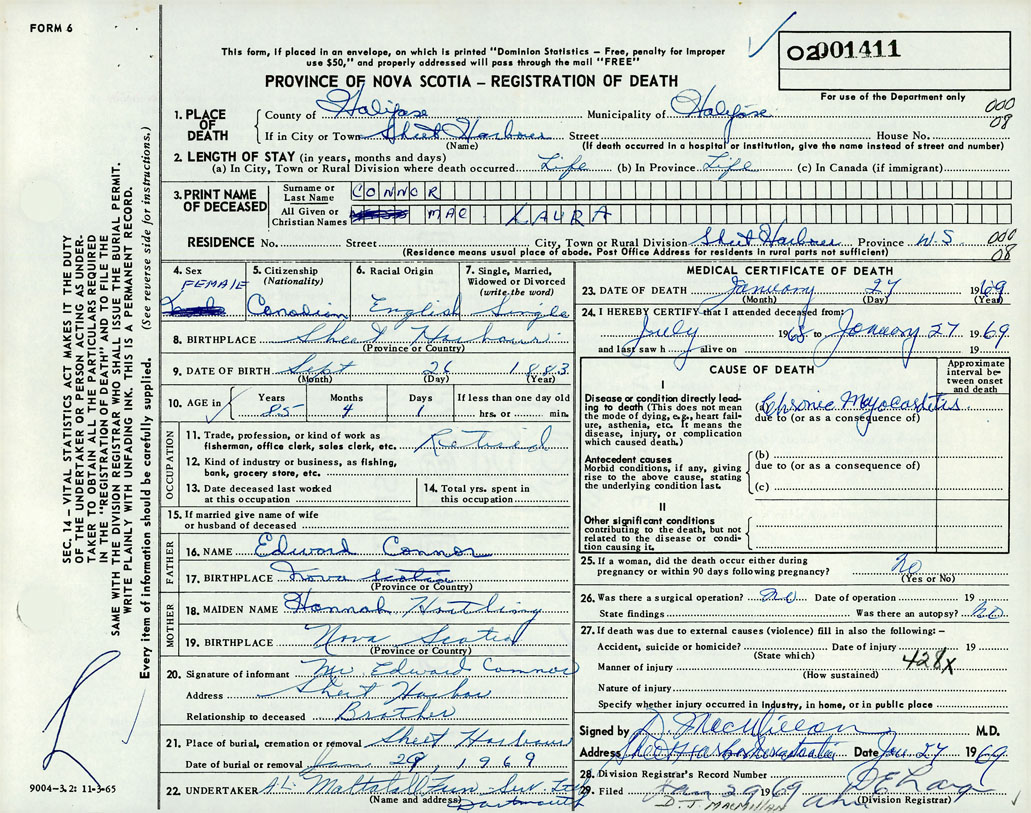 FORM 6
This form, if placed in an envelope, on which is printed "Dominion Statistics – Free, penalty for improper
use $50," and properly addressed will pass through the mail "FREE"
PROVINCE OF NOVA SCOTIA – REGISTRATION OF DEATH
02 001411
For use of the Department only
000
08
1. PLACE OF DEATH
County of Halifax Municipality of Halifax
If in City or Town Sheet Harbour Street House No.
(Name) (If death occurred in a hospital or institution, give the name instead of street and number)
2. LENGTH OF STAY (in years, months and days)
(a) In City, Town or Rural Division where death occurred Life (b) In Province Life (c) In Canada (if immigrant)
3. PRINT NAME OF DECEASED
Surname or Last Name CONNOR
All Given or Christian Names MAE LAURA
RESIDENCE No. Street City, Town or Rural Division Sheet Harbour Province N.S. 000
08
(Residence means usual place of abode. Post Office Address for residents in rural parts not sufficient)
4. Sex
FEMALE
5. Citizenship
(Nationality)
Canadian
6. Racial Origin
English
7. Single, Married, Widowed or Divorced
(write the word)
Single
8. BIRTHPLACE Sheet Harbour
(Province or Country)
9. DATE OF BIRTH Sept 26 1883
(Month) (Day) (Year)
10. AGE in
Years Months Days If less than one day old
85 4 1 hrs. or min.
OCCUPATION
11. Trade, profession, or kind of work as
fisherman, office clerk, sales clerk, etc. Retired
12. Kind of industry or business, as fishing,
bank, grocery store, etc.
13. Date deceased last worked
at this occupation
14. Total yrs. spent in
this occupation
15. If married give name of wife
or husband of deceased
FATHER
16. NAME Edward Connor
17. BIRTHPLACE Nova Scotia
(Province or Country)
MOTHER
18. MAIDEN NAME Hannah Hartling
19. BIRTHPLACE Nova Scotia
(Province or Country)
20. Signature of informant Mr Edward Connor
Address Sheet Harbour
Relationship to deceased Brother
21. Place of burial, cremation or removal Sheet Harbour
Date of burial or removal Jan 29, 1969
22. UNDERTAKER A.L. Mattatall Fun. Ser.
(Name and address) Dartmouth
MEDICAL CERTIFICATE OF DEATH
23. DATE OF DEATH January 27 1969
(Month) (Day) (Year)
24. I HEREBY CERTIFY that I attended deceased from:
July 1968 to January 27 1969
and last saw h alive on 19
CAUSE OF DEATH
Approximate interval between onset and death
I
Disease or condition directly leading to death (This does not
mean the mode of dying, e.g., heart failure, asthenia, etc. It means the
disease, injury, or complication
which caused death.)
(a) Chronic Myocarditis
due to (or as a consequence of)
Antecedent causes
Morbid conditions, if any, giving
rise to the above cause, stating
the underlying condition last.
(b)
due to (or as a consequence of)
(c)
II
Other significant conditions
contributing to the death, but not
related to the disease or condition causing it.
25. If a woman, did the death occur either during
pregnancy or within 90 days following pregnancy? No
(Yes or No)
26. Was there a surgical operation? No Date of operation 19
State findings Was there an autopsy? No
27. If death was due to external causes (violence) fill in also the following: –
Accident, suicide or homicide? Date of injury 19
(State which)
Manner of injury 428X
(How sustained)
Nature of injury
Specify whether injury occurred in industry, in home, or in public place
Signed by D. MacMillan M.D.
Address Sheet Harbour Nova Scotia Date Jan 27 1969
28. Division Registrar's Record Number
29. Filed Jan 29 1969
D. J. MACMILLAN (Division Registrar)
SEC. 14 – VITAL STATISTICS ACT MAKES IT THE DUTY
OF THE UNDERTAKER OR PERSON ACTING AS UNDERTAKER TO OBTAIN ALL THE PARTICULARS REQUIRED
IN THE "REGISTRATION OF DEATH" AND TO FILE THE
SAME WITH THE DIVISION REGISTRAR WHO SHALL ISSUE THE BURIAL PERMIT.
WRITE PLAINLY WITH UNFADING INK. THIS IS A PERMANENT RECORD.
Every item of information should be carefully supplied. (See reverse side for instructions.)
9004-3.2: 11-3-65